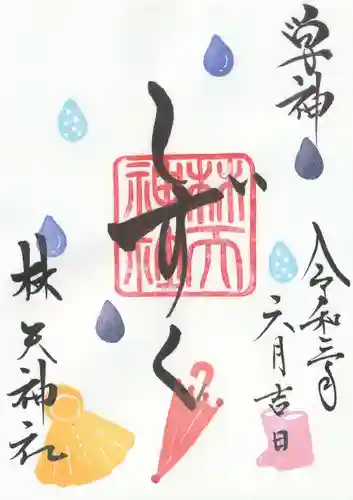 学神
令和三年
六月吉日
しずく
林天
神社
林天神社